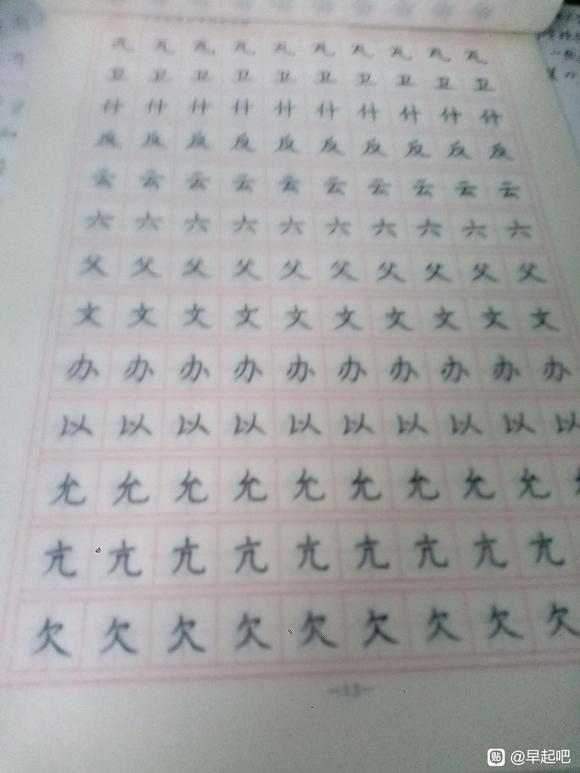 卫卫卫卫卫卫卫卫卫卫
什什什什什什什什什什
反反反反反反反反反反
云云云云云云云云云云
六六六六六六六六六六
父父父父父父父父父父
文文文文文文文文文文
办办办办办办办办办办
以以以以以以以以以以
允允允允允允允允允
亢亢亢亢亢亢亢亢亢
欠欠欠欠欠欠欠欠欠
—13—
贴 @早起吧